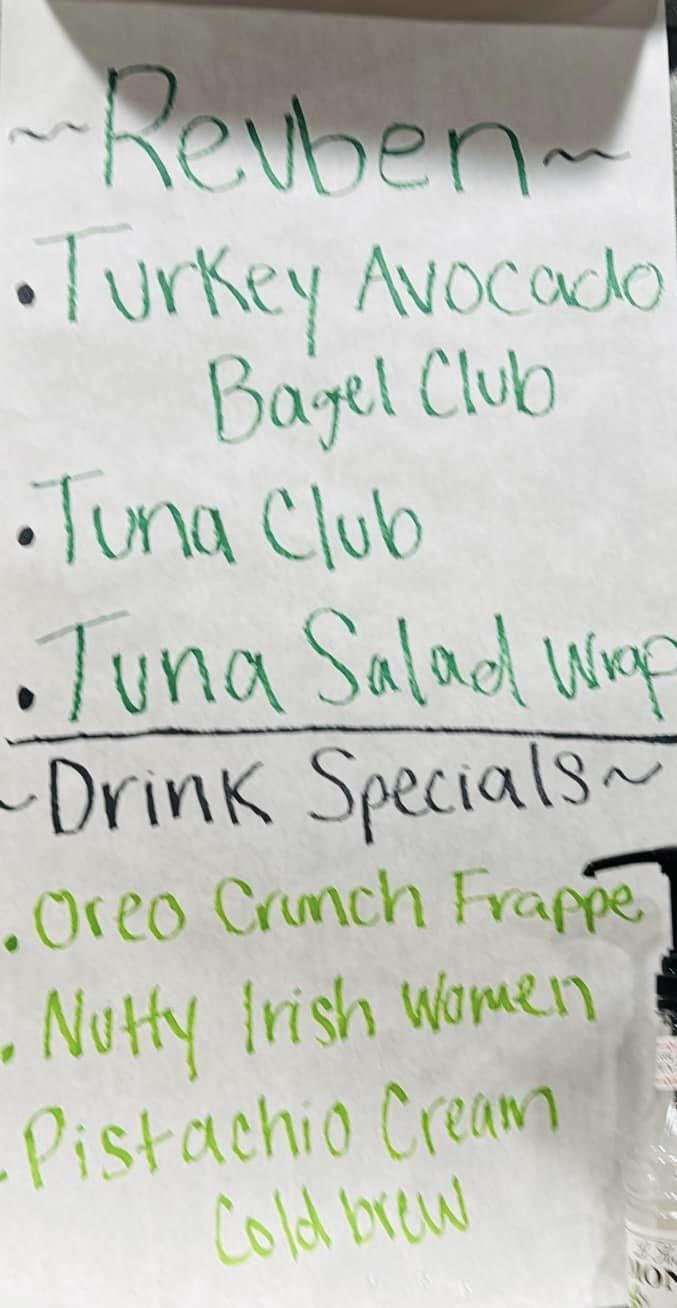 ~Reuben~
• Turkey Avocado
Bagel Club
• Tuna Club
• Tuna Salad Wrap
~Drink Specials~
• Oreo Crunch Frappe
• Nutty Irish Women
• Pistachio Cream
Cold brew